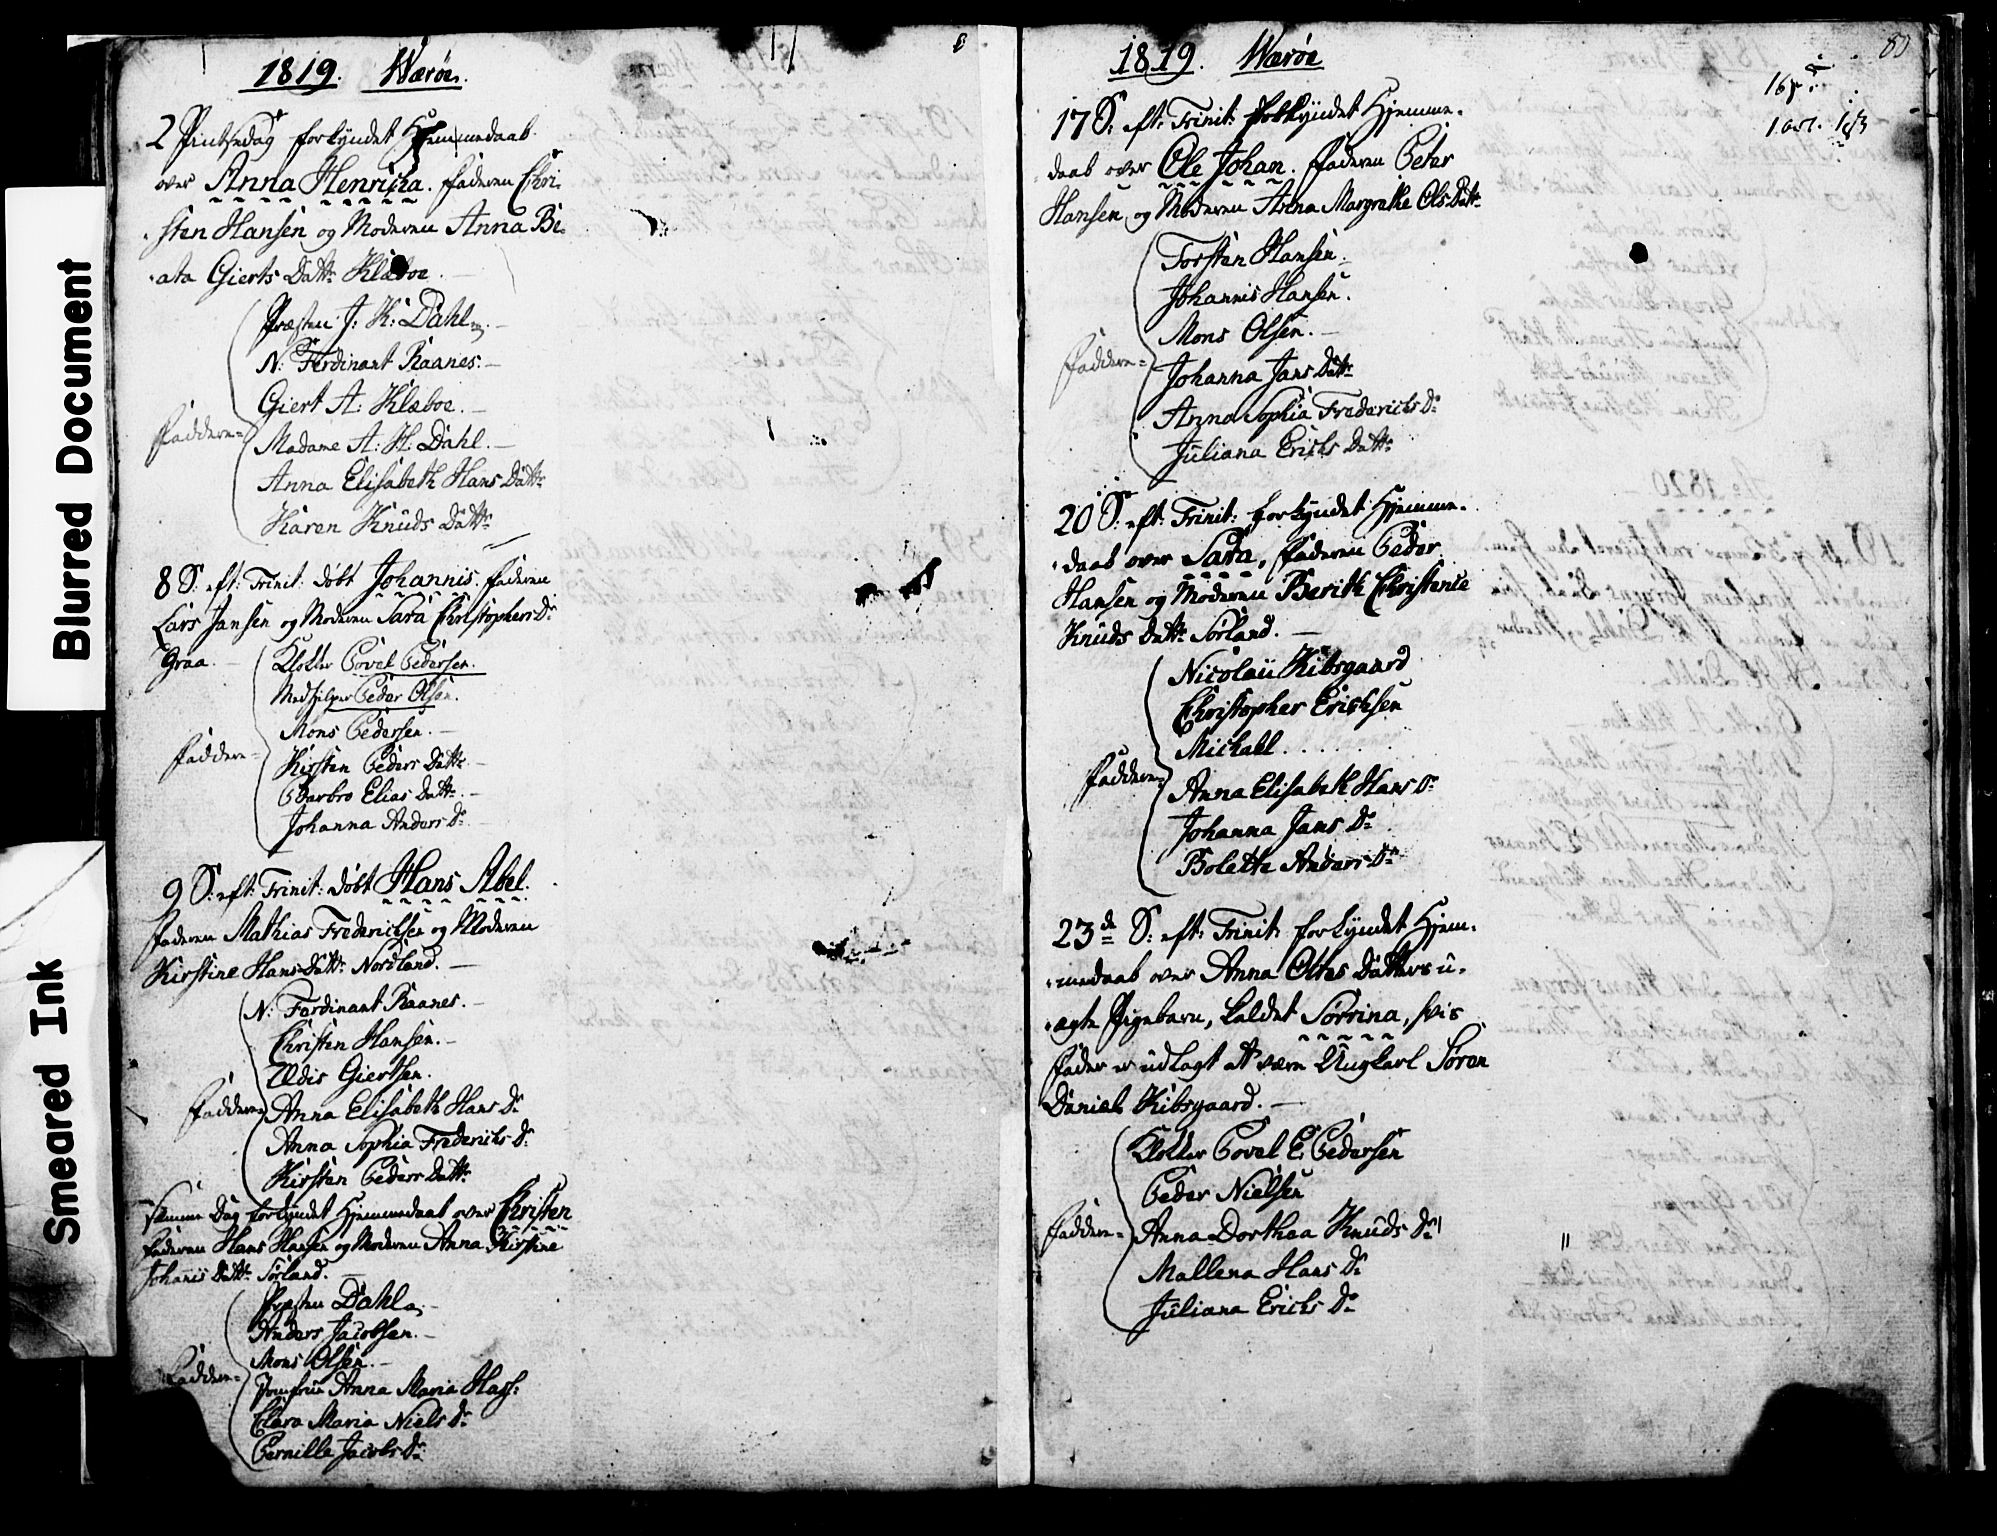 Blurred Document
Smeared Ink
1819. Wærøe.
2 Pintsedag forkyndet Hjemmedaab
over Anna Henricha. Faderen Chri-
sten Hansen og Moderen Anna Be-
ata Gierts Dattr Klæboe.
Præsten J: K: Dahl
N: Ferdinant Raanes.
Giert A: Klæboe.
Faddere =
Madame A: H: Dahl.
Anna Elisabeth Hans Dattr
Karen Knuds Dattr
8 S: eft: Trinit: døbt Johannis. Faderen
Lars Jansen og Moderen Sara Christophers Dr
Graa.
Klokker Povel Pedersen.
Medhjelper Peder Olsen.
Mons Pedersen.
Faddere =
Kirsten Peders Dattr
Barbro Elias Dattr
Johanna Anders Dr
9 S: eft: Trinit: døbt Hans Abel.
Faderen Mathias Frederichsen og Moderen
Kirstine Hans Dattr Nordland.
N: Ferdinant Raanes.
Christen Hansen.
Eldis Giertsen.
Faddere
Anna Elisabeth Hans Dr
Anna Sophia Frederichs Dr
Kirsten Peders Dattr
Samme Dag forkyndet Hjemmedaab over Christen
Faderen Hans Hansen og Moderen Anna Kirstine
Johannis Dattr Sørland.
Præsten Dahl
Anders Jacobsen.
Mons Olsen.
Faddere =
Jomfrue Anna Maria Hass:
Clara Maria Niels Dr
Pernille Jacobs Dr
80
1819. Wærøe
17 S: eft: Trinit: forkyndet Hjemme-
daab over Ole Johan. Faderen Peter
Hansen og Moderen Anna Margrethe Ols Dattr
Torsten Hansen.
Johannis Hansen.
Mons Olsen.
Faddere =
Johanna Jans Dattr
Anna Sophia Frederichs Dr
Juliana Erichs Dattr
20 S: eft: Trinit: forkyndet Hjemme-
daab over Sara, Faderen Peder
Hansen og Moderen Berith Christense
Knuds Dattr Sørland.
Nicolaii Kibsgaard
Christopher Erichsen
Michael . . . . .
Faddere
Anna Elisabeth Hans Dr
Johanna Jans Dr
Bolette Anders Dr
23de S: eft: Trinit: forkyndet Hjem-
medaab over Anna Ottes Datters u-
ægte Pigebarn, kaldet Sørrina, hvis
Fader er udlagt at være Ungkarl Søren
Daniels Kibsgaard.
Klokker Povel E. Pedersen
Peder Nielsen
Faddere =
Anna Dorthea Knuds Dr
Mallena Hans Dr
Juliana Erichs Dr